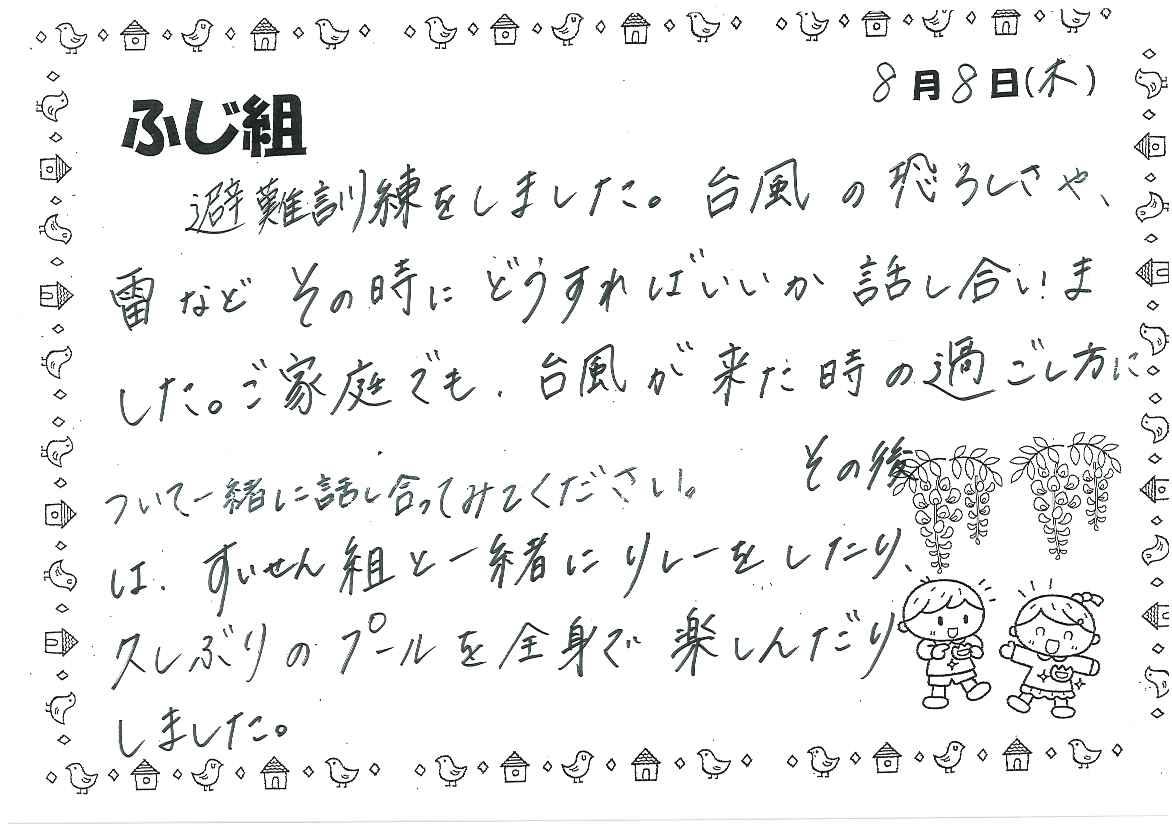 8月8日(木)
ふじ組
避難訓練をしました。台風の恐ろしさや、
雷などその時にどうすればいいか話し合いま
した。ご家庭でも、台風が来た時の過ごし方に
ついて一緒に話し合ってみてください。 その後
は、すいせん組と一緒にリレーをしたり、
久しぶりのプールを全身で楽しんだり
しました。